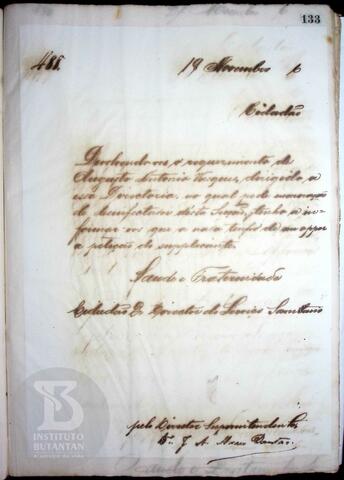 133
485. 19 Novembro 6
Cidadão
Devolvendo-vos o requerimento de
Augusto Antonio Vasques, dirigido a
essa Directoria, no qual pede nomeação
de desinfectador desta Secção, tenho a in-
formar-vos que a nada tenho de me oppor
a petição do supplicante.
Saude e Fraternidade
Cidadão Dr. Director do Serviço Sanitario
pelo Director Superintendente,
Dr. J. A.
INSTITUTO
BUTANTAN
A serviço da vida